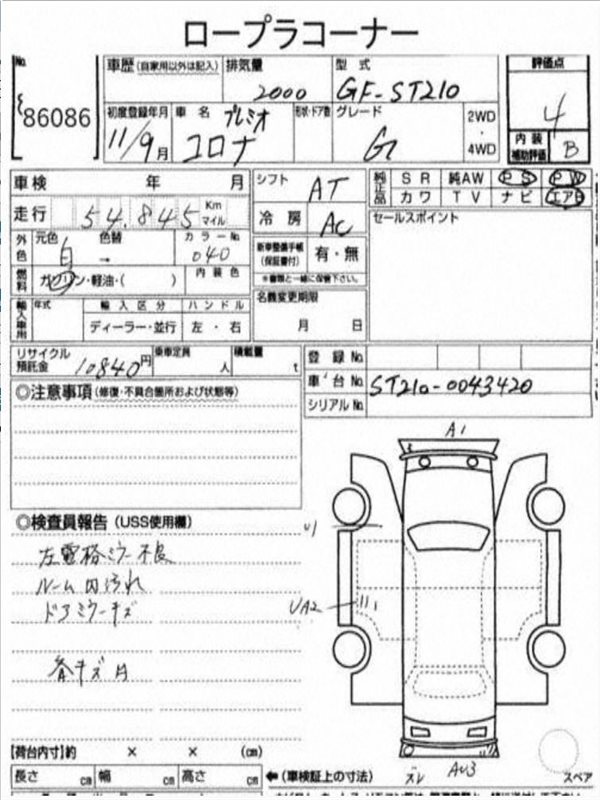 ロープラコーナー
No.
86086
車歴(自家用以外は記入)
排気量
2000
型式
GF-ST210
評価点
4
内装
補助評価
B
初度登録年月
11/9月
車名
プレミオ
コロナ
形状・ドア数
グレード
G
2WD
・
4WD
車検 年 月
走行 54,845 Km マイル
シフト AT
冷房 AC
純正品
SR 純AW PS PW
カワ TV ナビ エアB
セールスポイント
外色
元色 色替
白 →
カラーNo.
040
内装色
燃料
ガソリン・軽油・( )
新車整備手帳
(保証書付)
有・無
※書類と一緒に保管下さい。
輸入車用
年式
輸入区分
ハンドル
ディーラー・並行
左・右
名義変更期限
月 日
リサイクル
預託金
10840円
乗車定員
人
積載量
t
登録No.
車台No.
ST210-0043420
シリアルNo.
◎注意事項(修復・不具合箇所および状態等)
A1
◎検査員報告(USS使用欄)
左電格ミラー不良
ルーム内汚れ
ドアミラーキズ
U1
UA2
各キズ凹
【荷台内寸】約 × × (cm)
長さ cm 幅 cm 高さ cm
←(車検証上の寸法)
ズレ
AU3
スペア